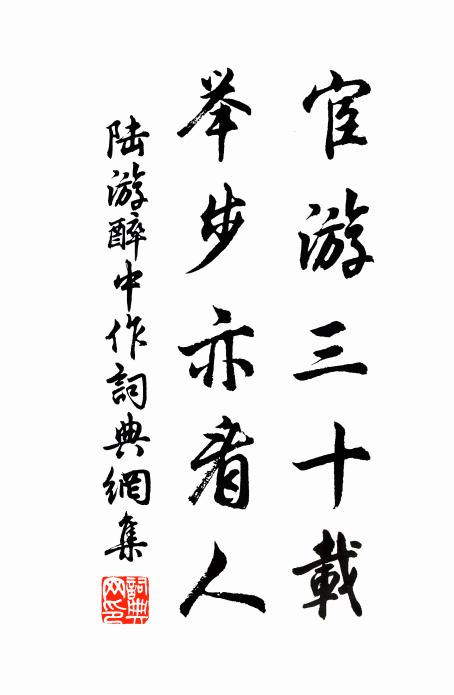 宦游三十載
举步亦看人
陆游醉中作詞典網集
詞典网印